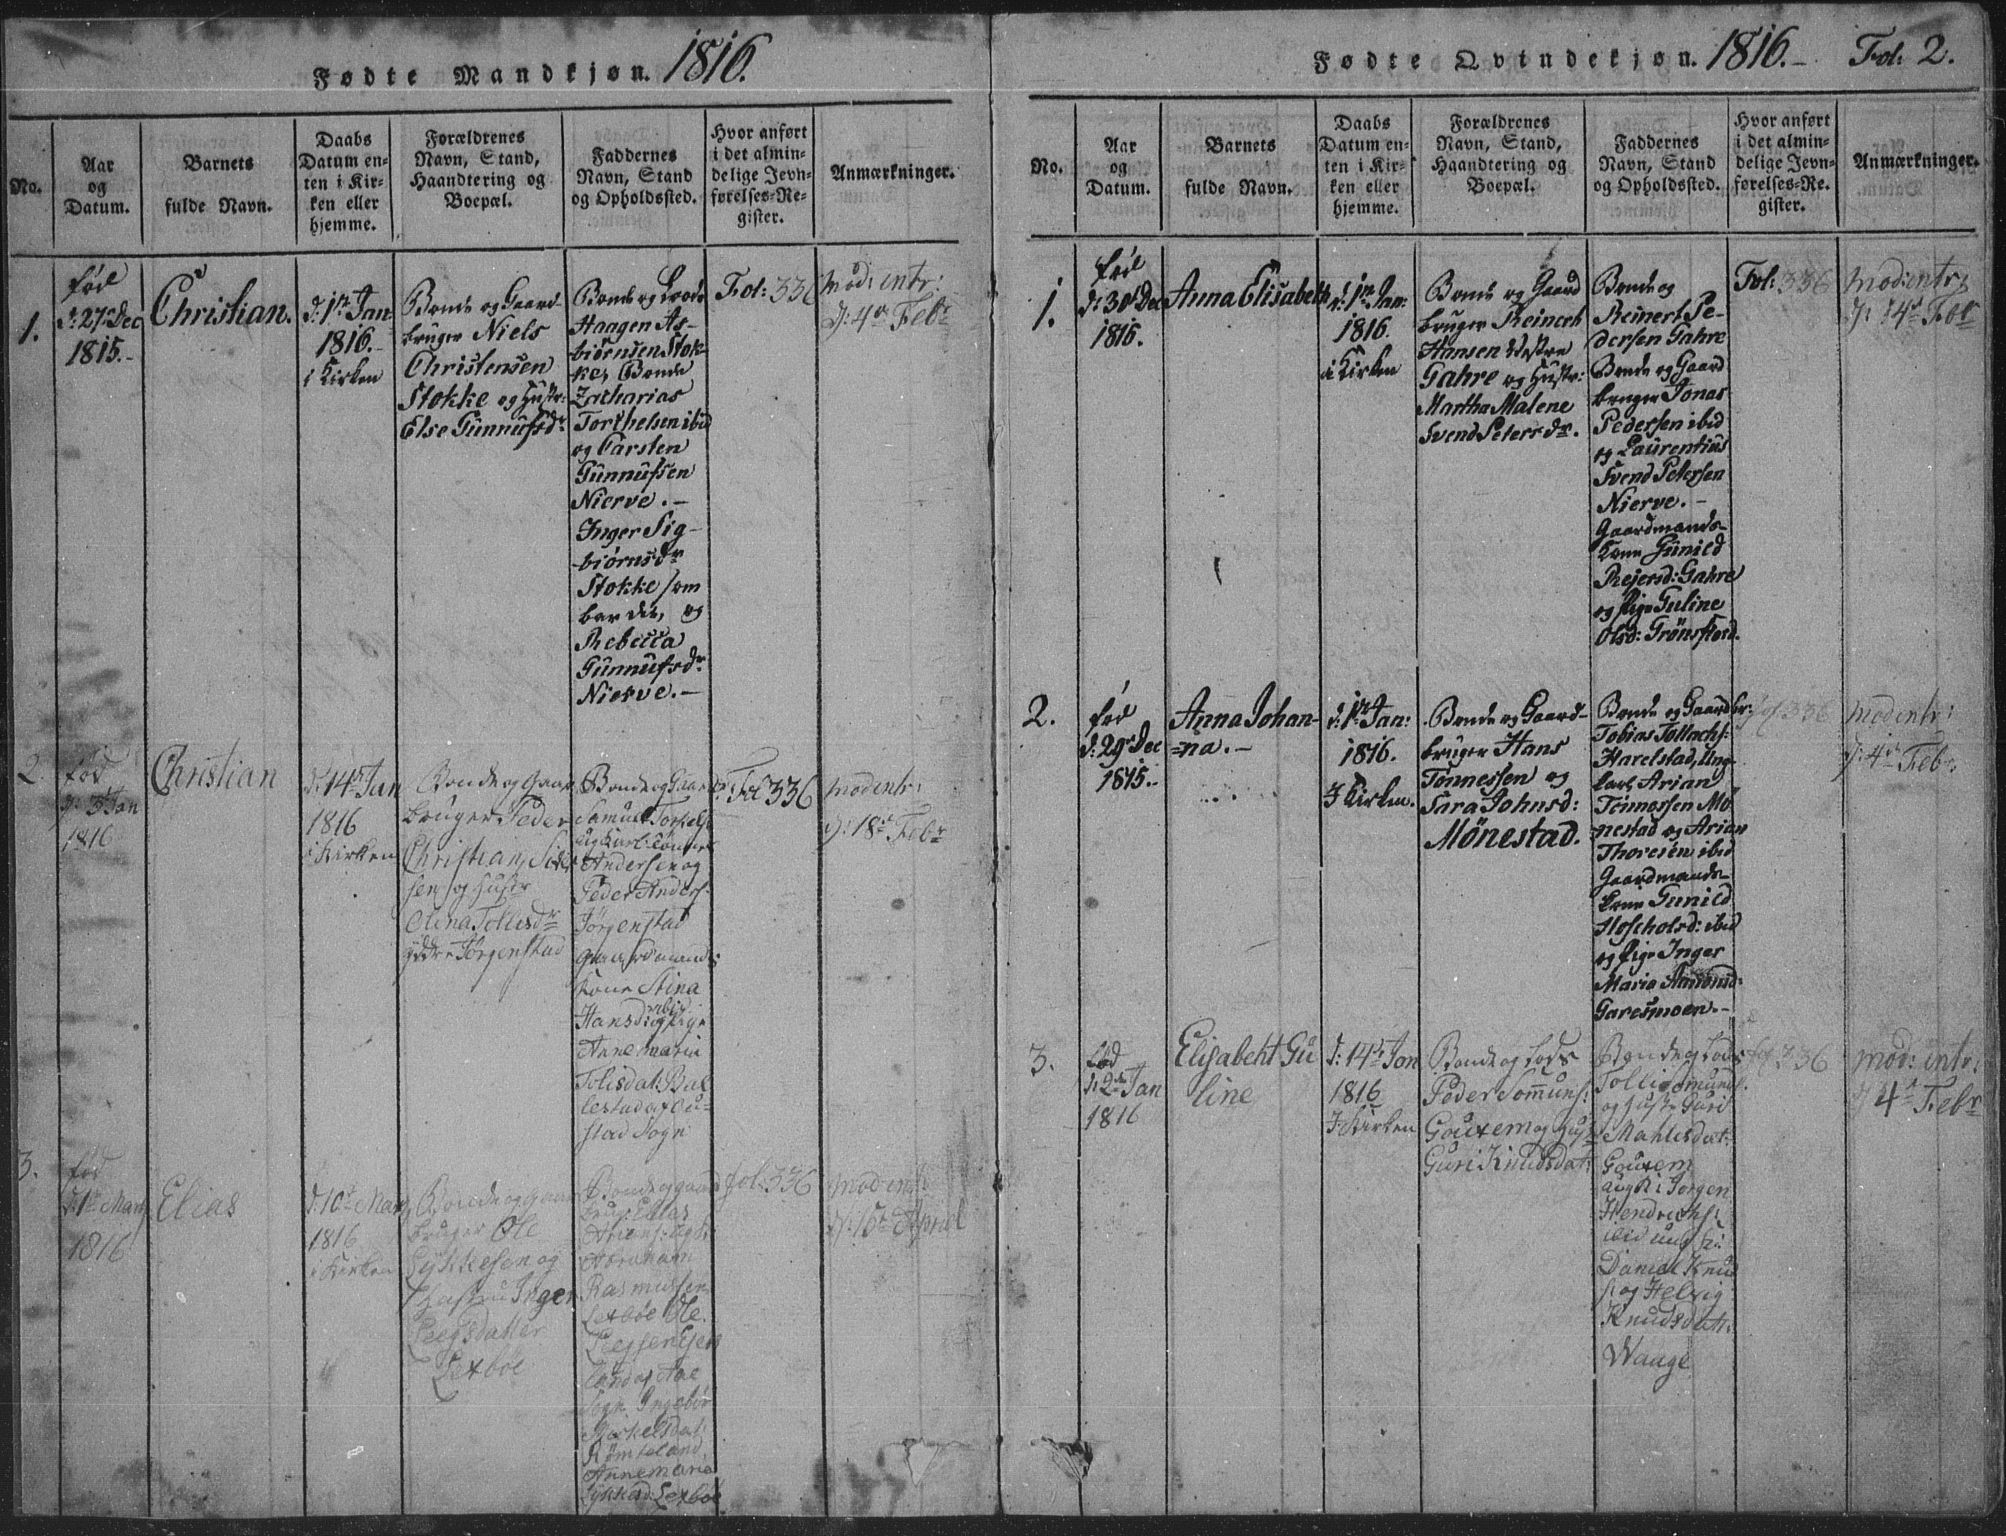 Fødte Mandkjøn. 1816.
No.
Aar
og
Datum.
Barnets
fulde Navn.
Daabs
Datum en-
ten i Kir-
ken eller
hjemme.
Forældrenes
Navn, Stand,
Haandtering og
Boepæl.
Faddernes
Navn, Stand
og Opholdssted.
Hvor anført
i det almin-
delige Jevn-
førelses-Re-
gister.
Anmærkninger.
1.
fød
d: 27de Dec
1815.-
Christian.
d: 1ste Jan
1816.-
i Kirken
Bonde og Gaard-
bruger Niels
Christensen
Stokke og Hustr:
Else Gunnufsdr
Bonde og Lods
Haagen As-
biørnsen Stok-
ke, Bonde
Zacharias
Torchelsen ibid
og Carsten
Gunnufsen
Nierve. -
Inger Sig-
biørnsdr
Stokke som
bar det, og
Rebecca
Gunnufsdr
Nierve. -
Fol: 336
Mod: intr:
d: 4de Febr
2.
fød
1816
Christian
d: 14de Jan
1816
i Kirken
Bonde og Gaard
bruger Peder
Christian
sen og Hustr
Olena Tollisdr
Jørgenstad
Bonde og Gaard
Samuel
Andersen og
Peder Anders:
Jørgenstad
Gaardmands
kone Stina
Hansdr ibid
og Pige
Anne Maria
Tolisdat: Bal
lestad af Ou-
stad Sogn
Fol 336
mod intr:
d: 18de Febr
3.
fød
d: 1ste Marty
1816
Elias
d: 10de Marty
1816
i Kirken
Bonde og Gaard
bruger Ole
Lykkesen og
Hustru Inger
Leegsdatter
Lexbøe
Bonde og Gaard
brug: Elias
Abraham
Rasmusen
Lexbøe Ole
Land af Aae
Sogn Ingebor
Mickelsdat:
Rømteland,
Annemarie
Lykkesd: Lexbøe
fol: 336
mod int:
d: 15de Apriel
Fødte Qvindekjøn. 1816.- Fol: 2.
No.
Aar
og
Datum.
Barnets
fulde Navn.
Daabs
Datum en-
ten i Kir-
ken eller
hjemme.
Forældrenes
Navn, Stand,
Haandtering og
Boepæl.
Faddernes
Navn, Stand
og Opholdssted.
Hvor anført
i det almin-
delige Jevn-
førelses-Re-
gister.
Anmærkninger.
1.
fød
d: 30te Dec
1815.
Anna Elisabeth
d: 1ste Jan:
1816.
i Kirken
Bonde og Gaard
bruger Reinert
Hansen Vestre
Gahre og Hustr:
Martha Malene
Svend Petersdr.
Bonde og
Reinert Pe-
dersen Gahre
Bonde og Gaard
bruger Jonas
Pedersen ibid
og Laurentius
Svend Petersen
Nierve. -
Gaardmands-
kone Gunild
Rejersd: Gahre
og Pige Guline
Olsd: Grønsfiord.
Fol: 336
Mod: intr:
d: 4de Febr
2.
fød
d: 29de Dec
1815.
Anna Johan-
=na. -
d: 1ste Jan:
1816.
I Kirken.
Bonde og Gaard-
bruger Hans
Tønnessen og
Sara Johnsd:
Mønestad.
Bonde og Gaardbr:
Tobias Tollachs:
Harelstad, Ung-
karl Arian
Tønnessen Mø-
nestad og Arian
Thoresen ibid
Gaardmands-
kone Gunild
ibid
og Pige Inger
Maria Aamundsd:
Garesmoen. -
fol 336
Mod intr:
d: 4de Febr.
3.
fød
d: 2den Jan
1816
Elisabeht Gu
line
d: 14de Jan
1816
I Kirken
Bonde og Lods
Peder Somuns:
Gouxem og Hus
Guri Knudsdat:
Bonde og Lods
Tolli Somuns:
og Hustr Guri
Mahlisdat:
Gouxem
ungk: Jorgen
Hendrichs:
ibid ungk:
Daniel Knud
s: og Helvig
Knudsdat:
Waage
fol 336
mod: intr:
d 4de Febr